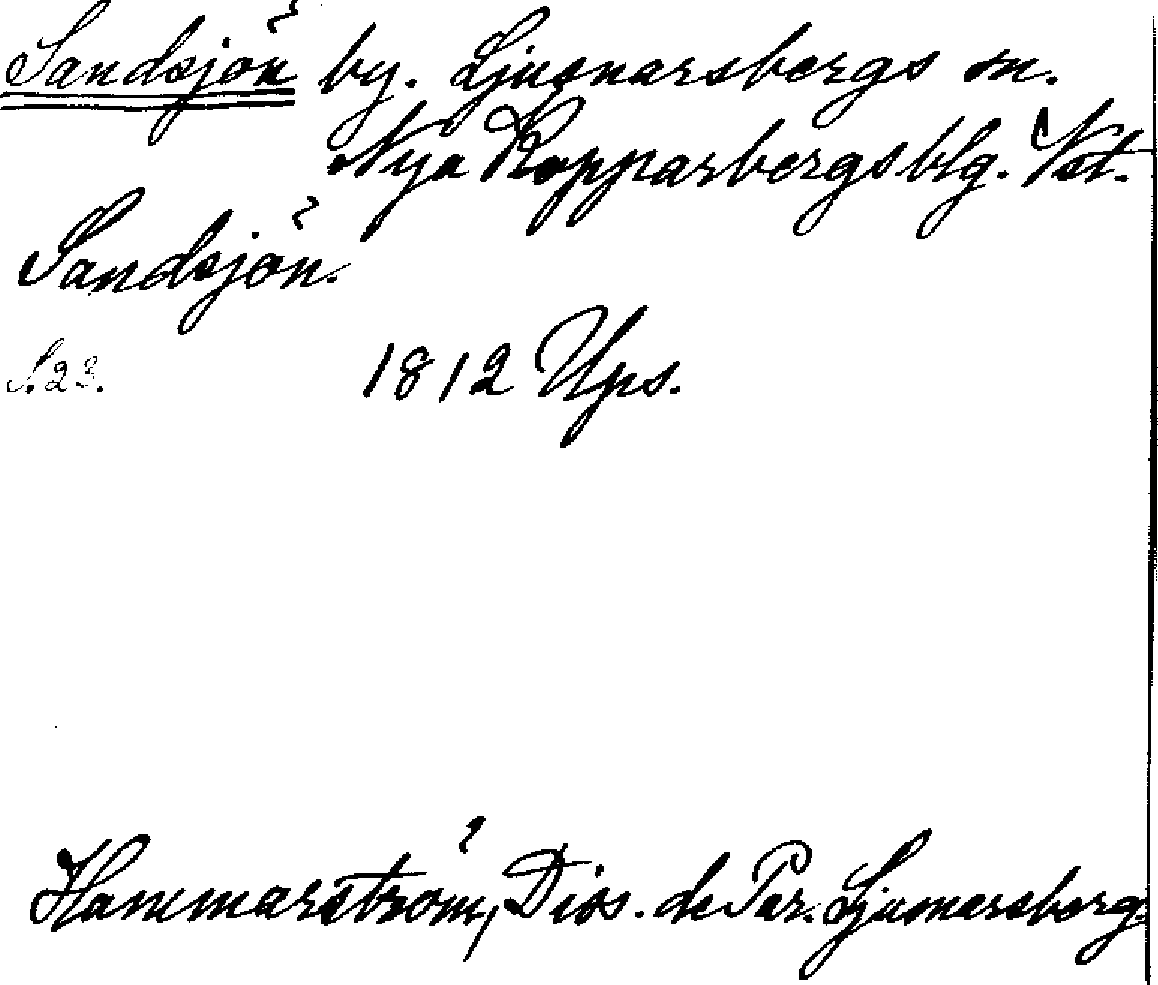 Sandsjön by. Ljusnarsbergs sn.
Nya Kopparbergs blg. Vst.
Sandsjön.
S. 23. 1812 Ups.
Hammarström, Diss. de Par. Ljusnarsberg.